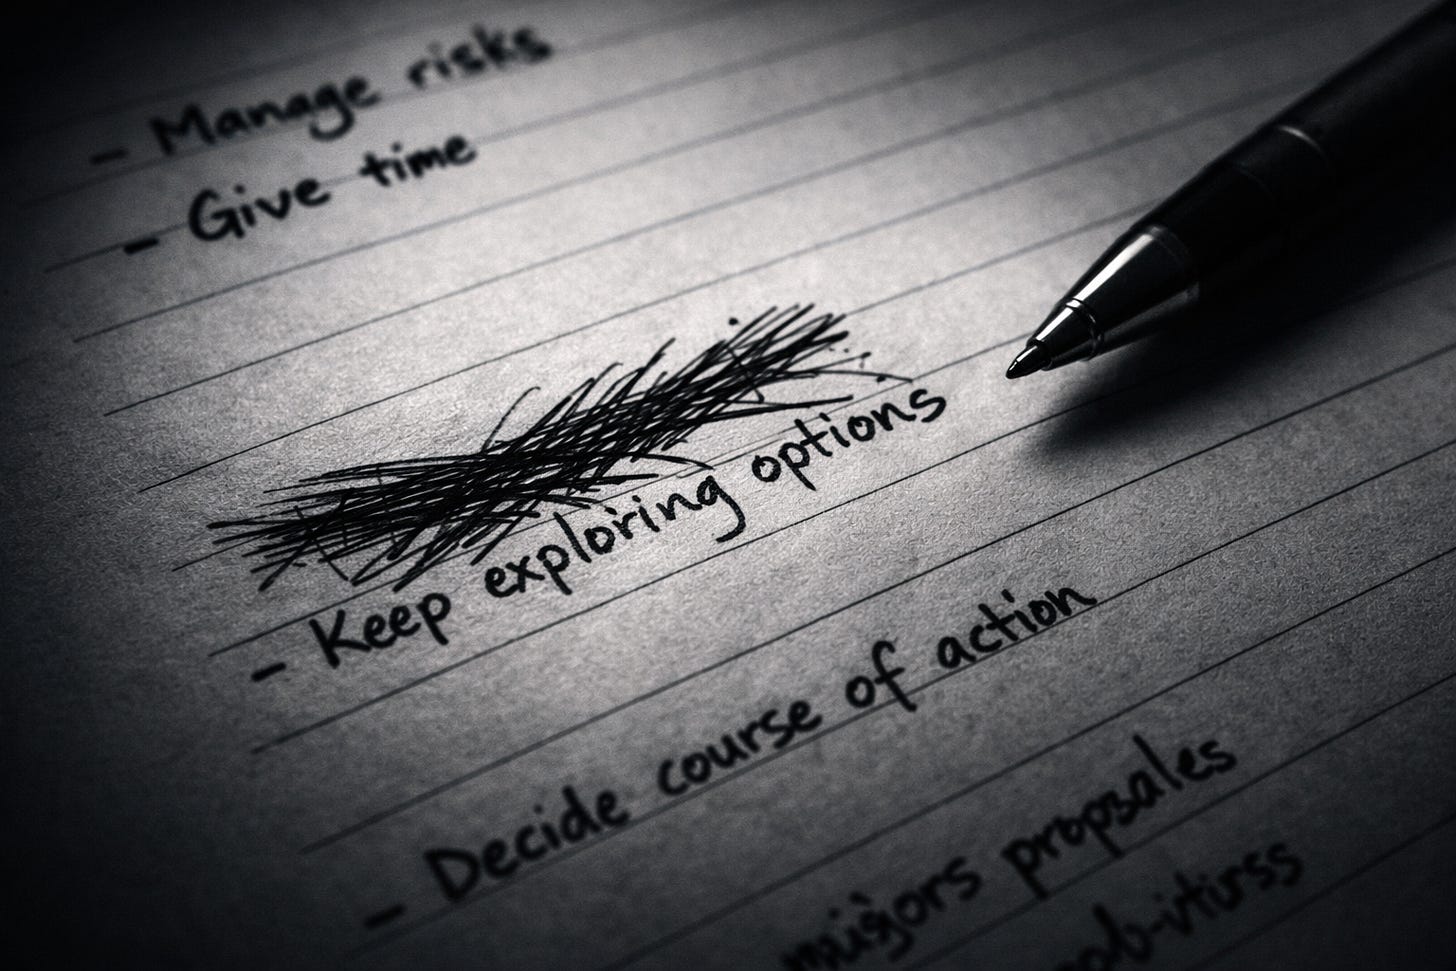 - Manage risks
- Give time
- Keep exploring options
- Decide course of action
propsales